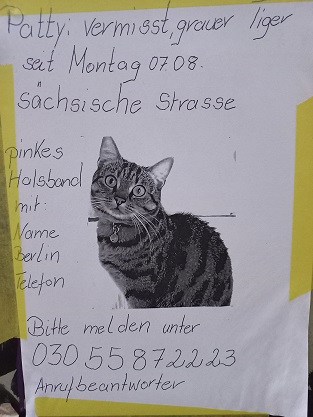 Patty: vermisst, grauer liger
seit Montag 07.08.
Sächsische Strasse
pinkes
Halsband
mit:
Name
Berlin
Telefon
Bitte melden unter
030 55 87 22 23
Anrufbeantworter